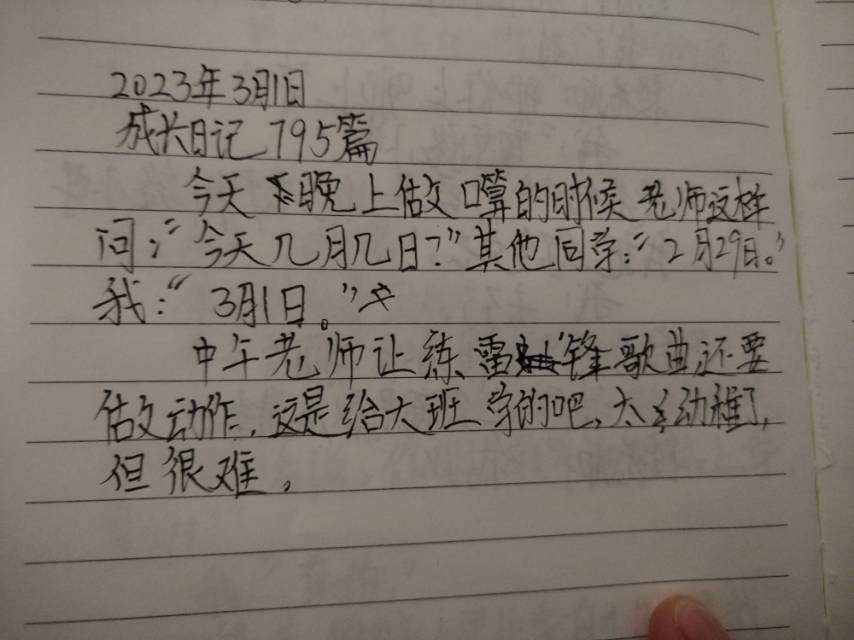 2023年3月1日
成长日记 795篇
今天晚上做口算的时候老师这样
问:“今天几月几日?”其他同学:“2月29日。”
我:“3月1日。”
中午老师让练雷锋歌曲还要
做动作,这是给大班学的吧,太幼稚了,
但很难,